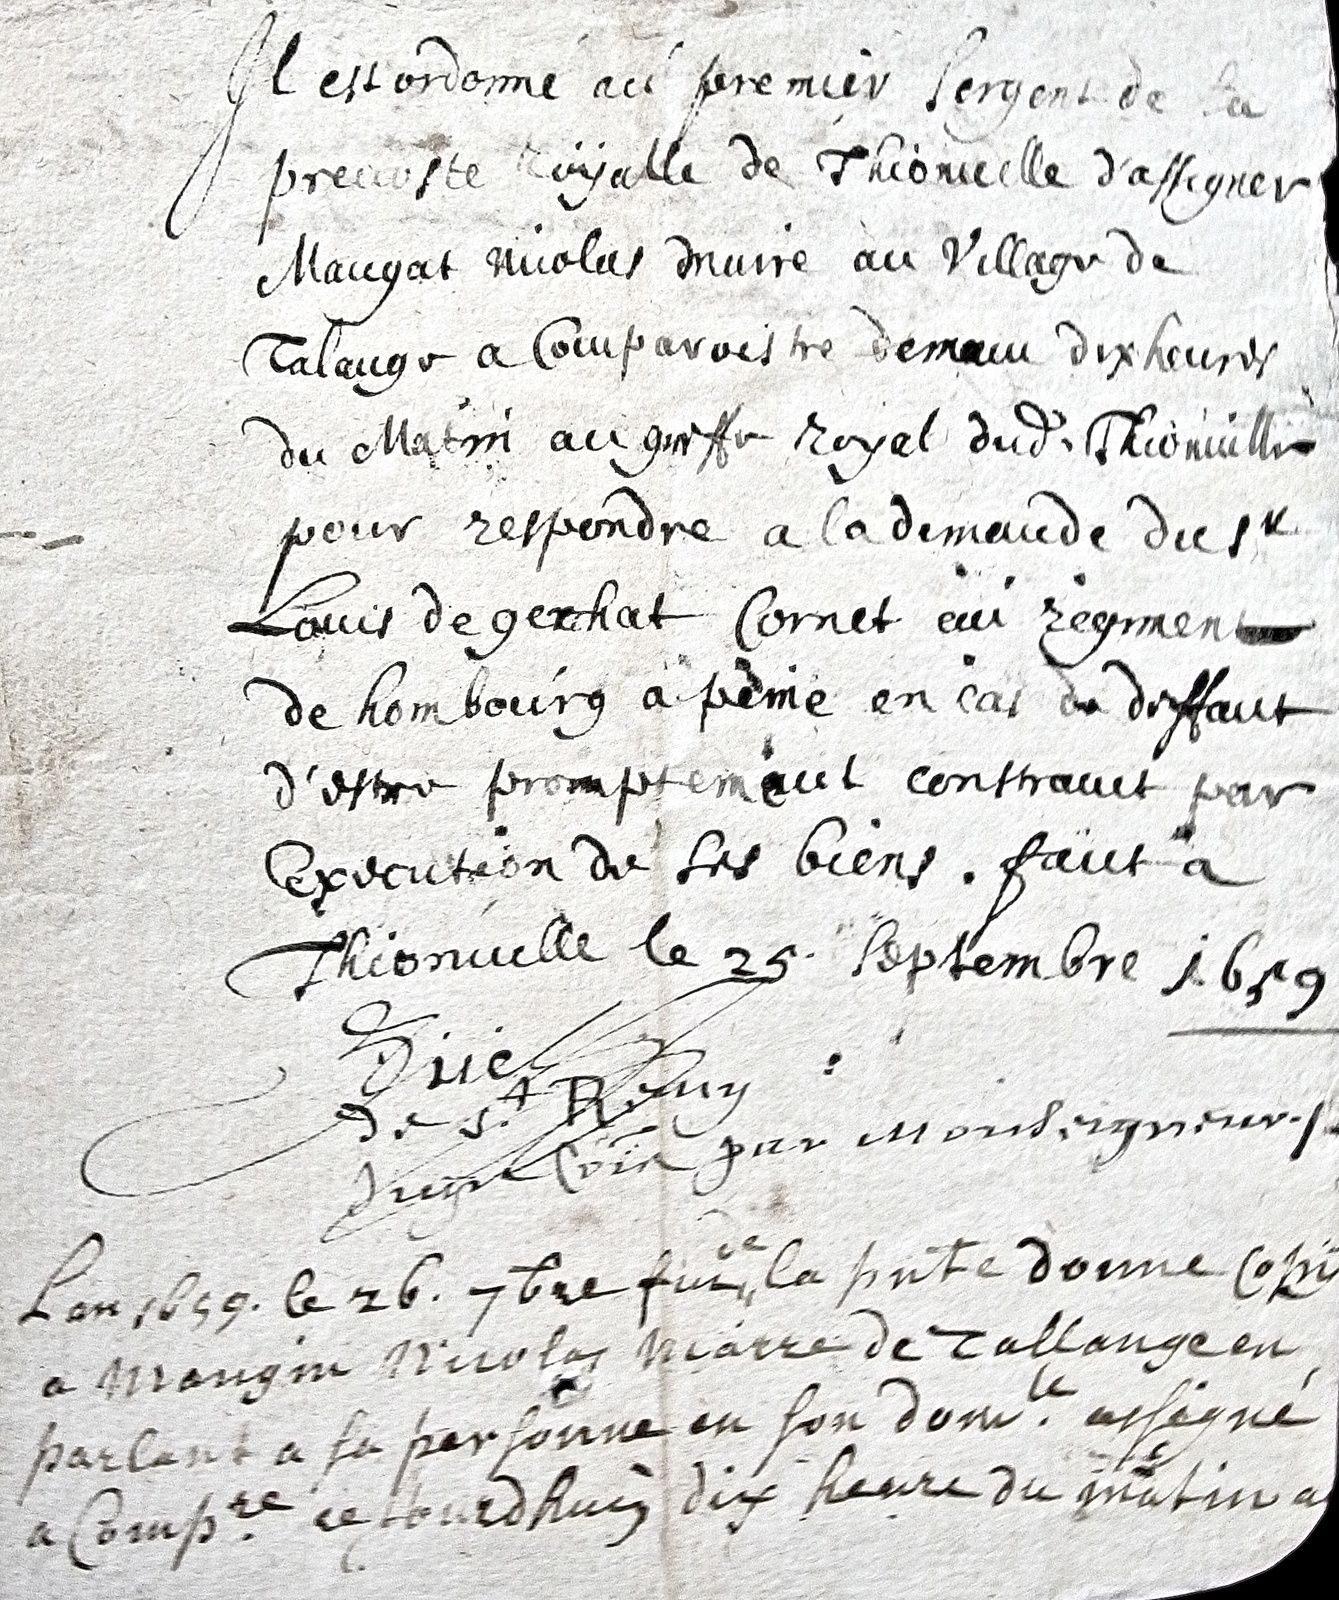 Il est ordonné au premier sergent de la
preuoste roÿalle de Thionuille d'assigner
Maugat nicolas maire au Village de
Talange a Comparoistre demain dix heures
du Matin au greffe royal dud. Thionuille
pour respondre a la demande du sr
Louis de gerhat Cornet au regiment
de hombourg a peine en cas de deffaut
d'estre promptement constraint par
Execution de ses biens. fait a
Thionuille le 25. Septembre 1659
de st Remy
par Monseigneur
Lan 1659. le 26. 7bre fut la pnte donne Copie
a Mangin Nicolas Maire de Tallange en
parlant a sa personne en son domle. assigné
a Compre. ce Jourdhuy dix heure du matin a